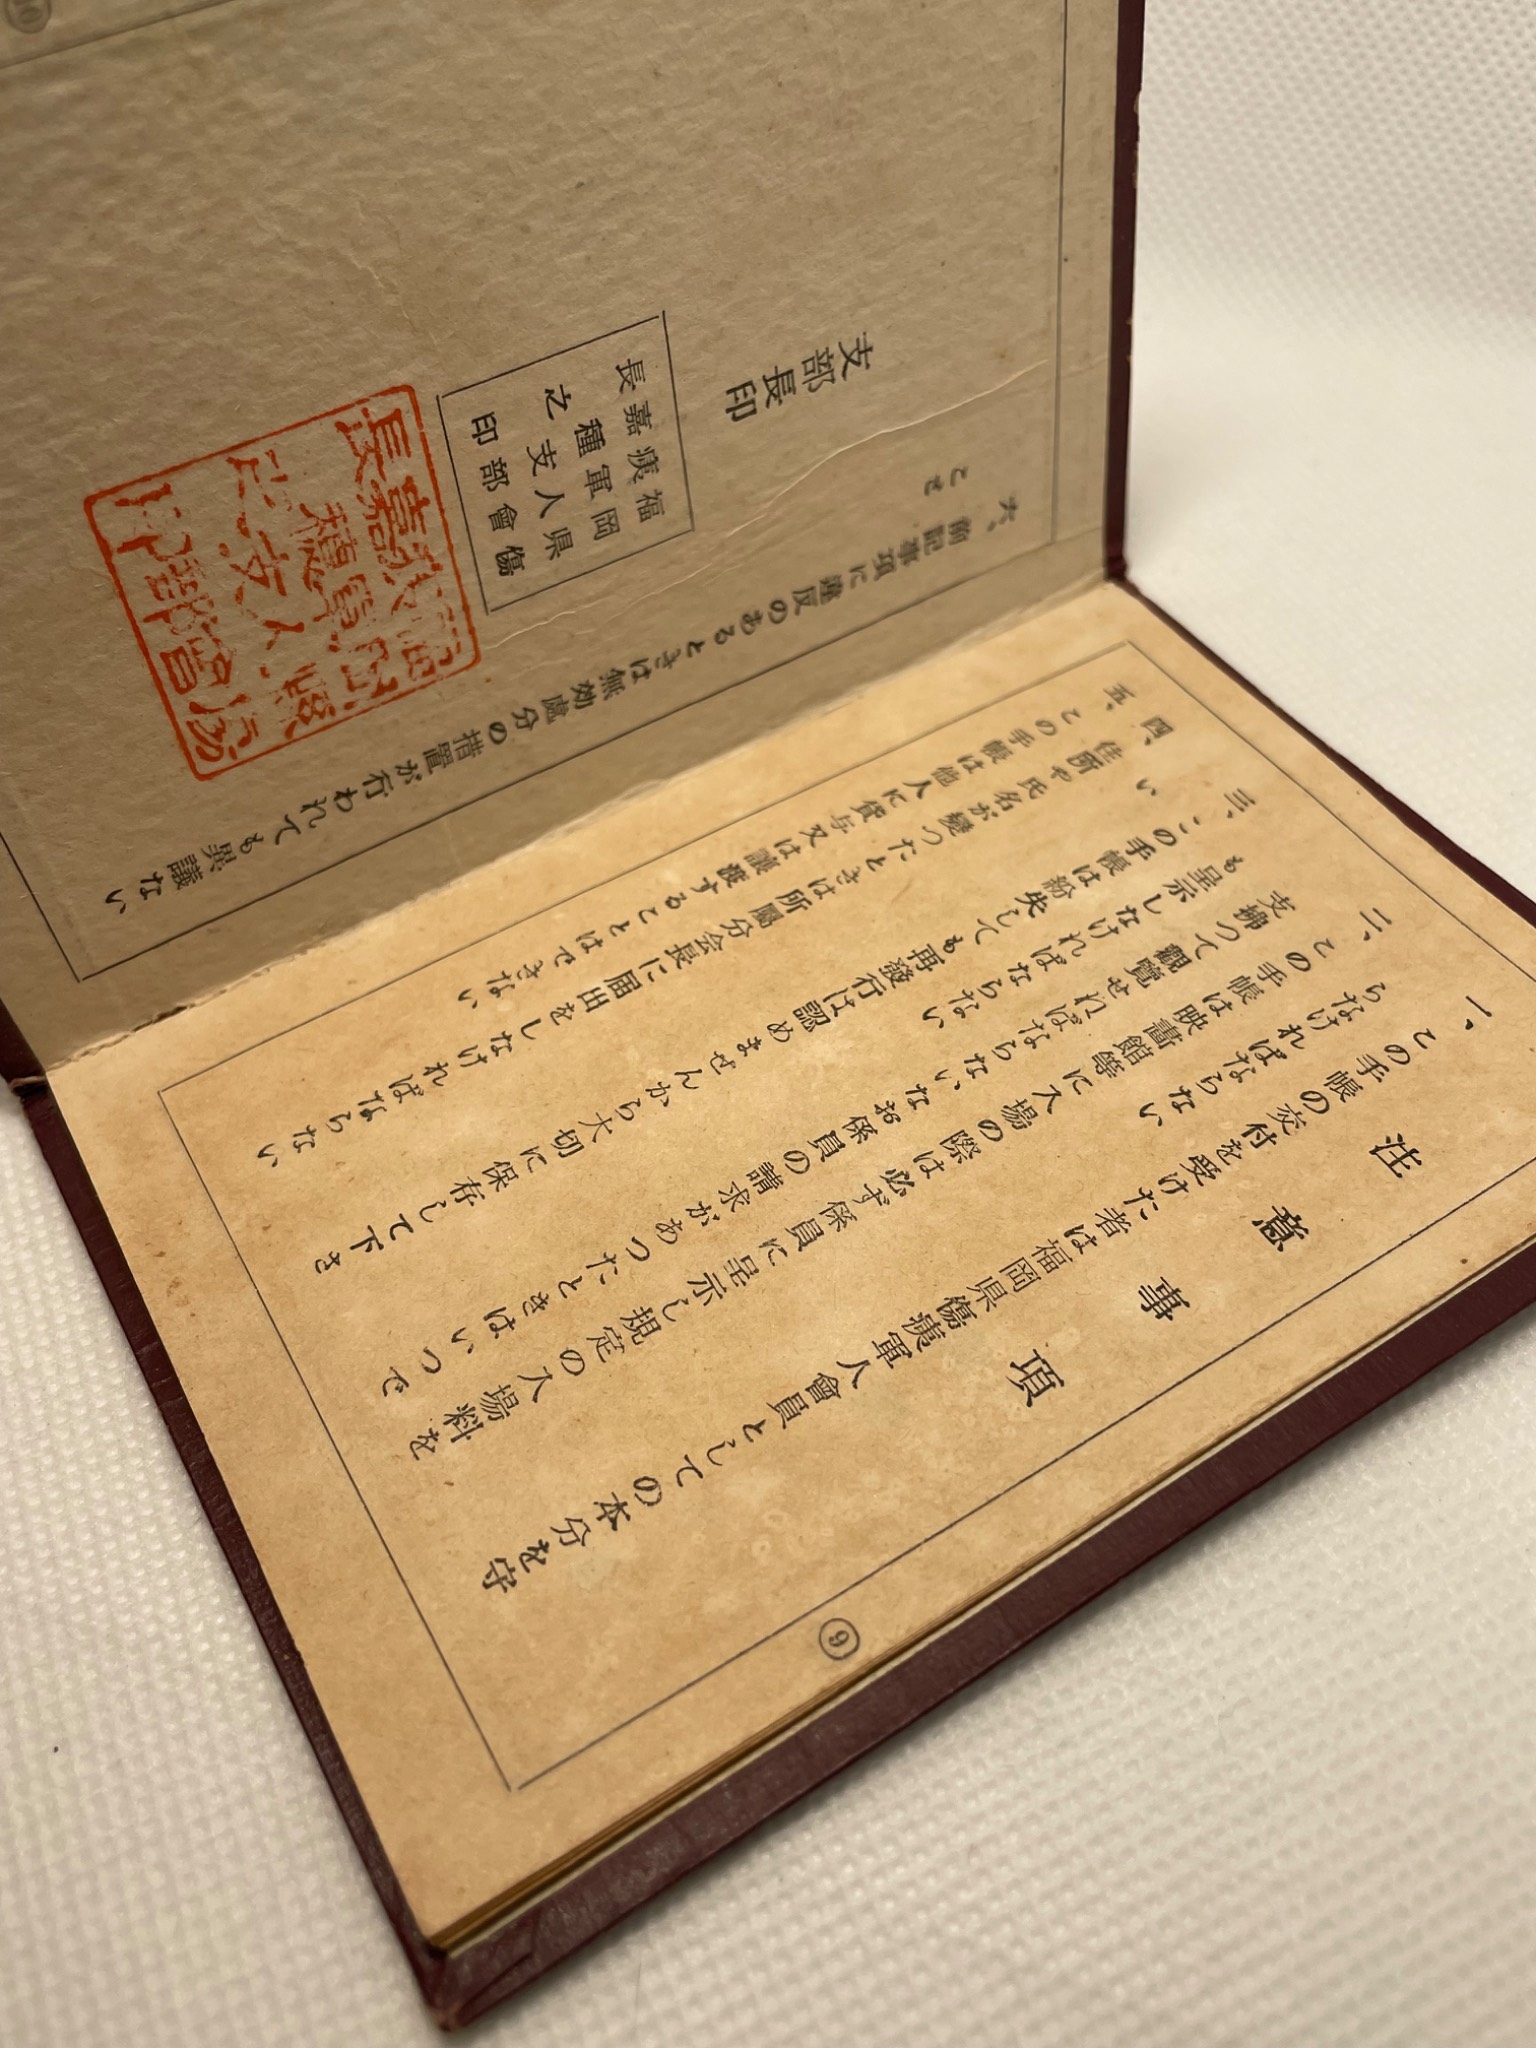 注意事項
一、この手帳の交付を受けた者は福岡県傷痍軍人會員としての本分を守
らなければならない
二、この手帳は映畫館等に入場の際は必ず係員に呈示し規定の入場料を
支拂つて觀覽せればならない なお係員の請求があつたときはいつで
も呈示しなければならない
三、この手帳は紛失しても再發行は認めませんから大切に保存して下さ
い
四、住所や氏名が變つたときは所屬分会長に届出をしなければならない
五、この手帳は他人に貸与又は讓渡することはできない
9
六、前記事項に違反のあるときは無効處分の措置が行われても異議ない
こせ
支部長印
福岡県傷
痍軍人會
嘉種支部
長之印
福岡縣傷
痍軍人會
嘉穗支部
長之印
10